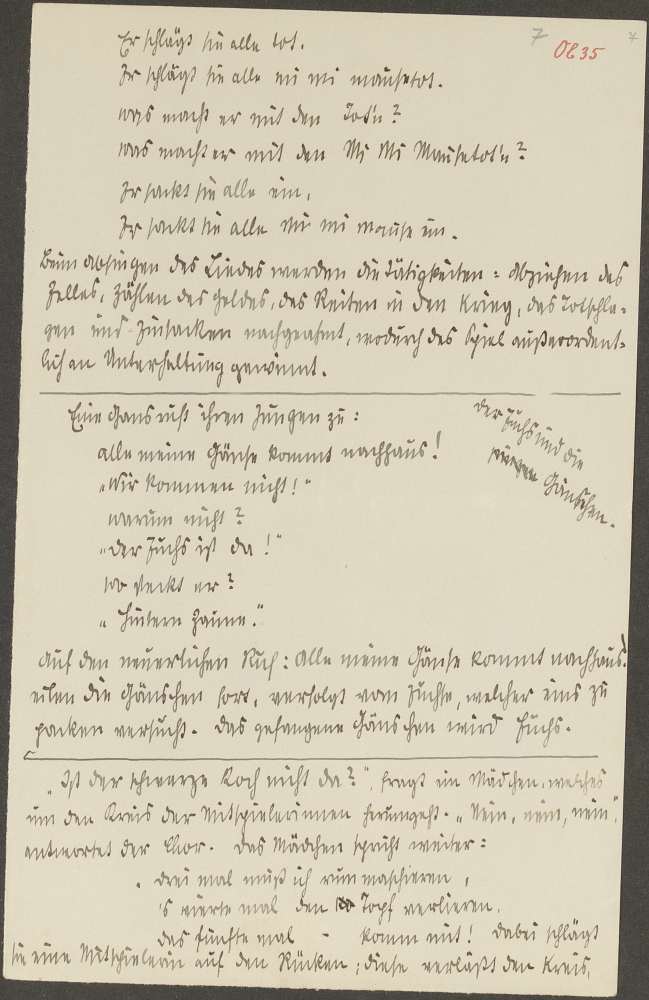 7
OE 35
7
Er schlägt sie alle tot.
Er schlägt sie alle mi mi mausetot.
was macht er mit den Tot'n?
was macht er mit den Mi Mi Mausetot'n?
Er sackt sie alle ein,
Er sackt sie alle mi mi mause ein.
Beim Absingen des Liedes werden die Tätigkeiten: Abziehen des
Felles, Zählen des Geldes, des Reiten in den Krieg, das Totschla-
gen und Einsacken nachgeahmt, wodurch des Spiel außerordent-
lich an Unterhaltung gewinnt.
Der Fuchs und die
Gänschen.
Eine Gans ruft ihren Jungen zu:
alle meine Gänse kommt nachhaus!
„Wir kommen nicht!"
warum nicht?
„Der Fuchs ist da!"
wo steckt er?
„Hintern Zaune."
Auf den neuerlichen Ruf: Alle meine Gänse kommt nachhaus!
eilen die Gänschen fort, verfolgt vom Fuchse, welcher eins zu
packen versucht. Das gefangene Gänschen wird Fuchs.
„Ist der schwarze Koch nicht da?", fragt ein Mädchen, welches
um den Kreis der Mitspielerinnen herumgeht. „Nein, nein, nein",
antwortet der Chor. Das Mädchen spricht weiter:
„drei mal muß ich rum maschieren,
's vierte mal den Topf verlieren,
das fünfte mal - komm mit! Dabei schlägt
sie eine Mitspielerin auf den Rücken; diese verläßt den Kreis,